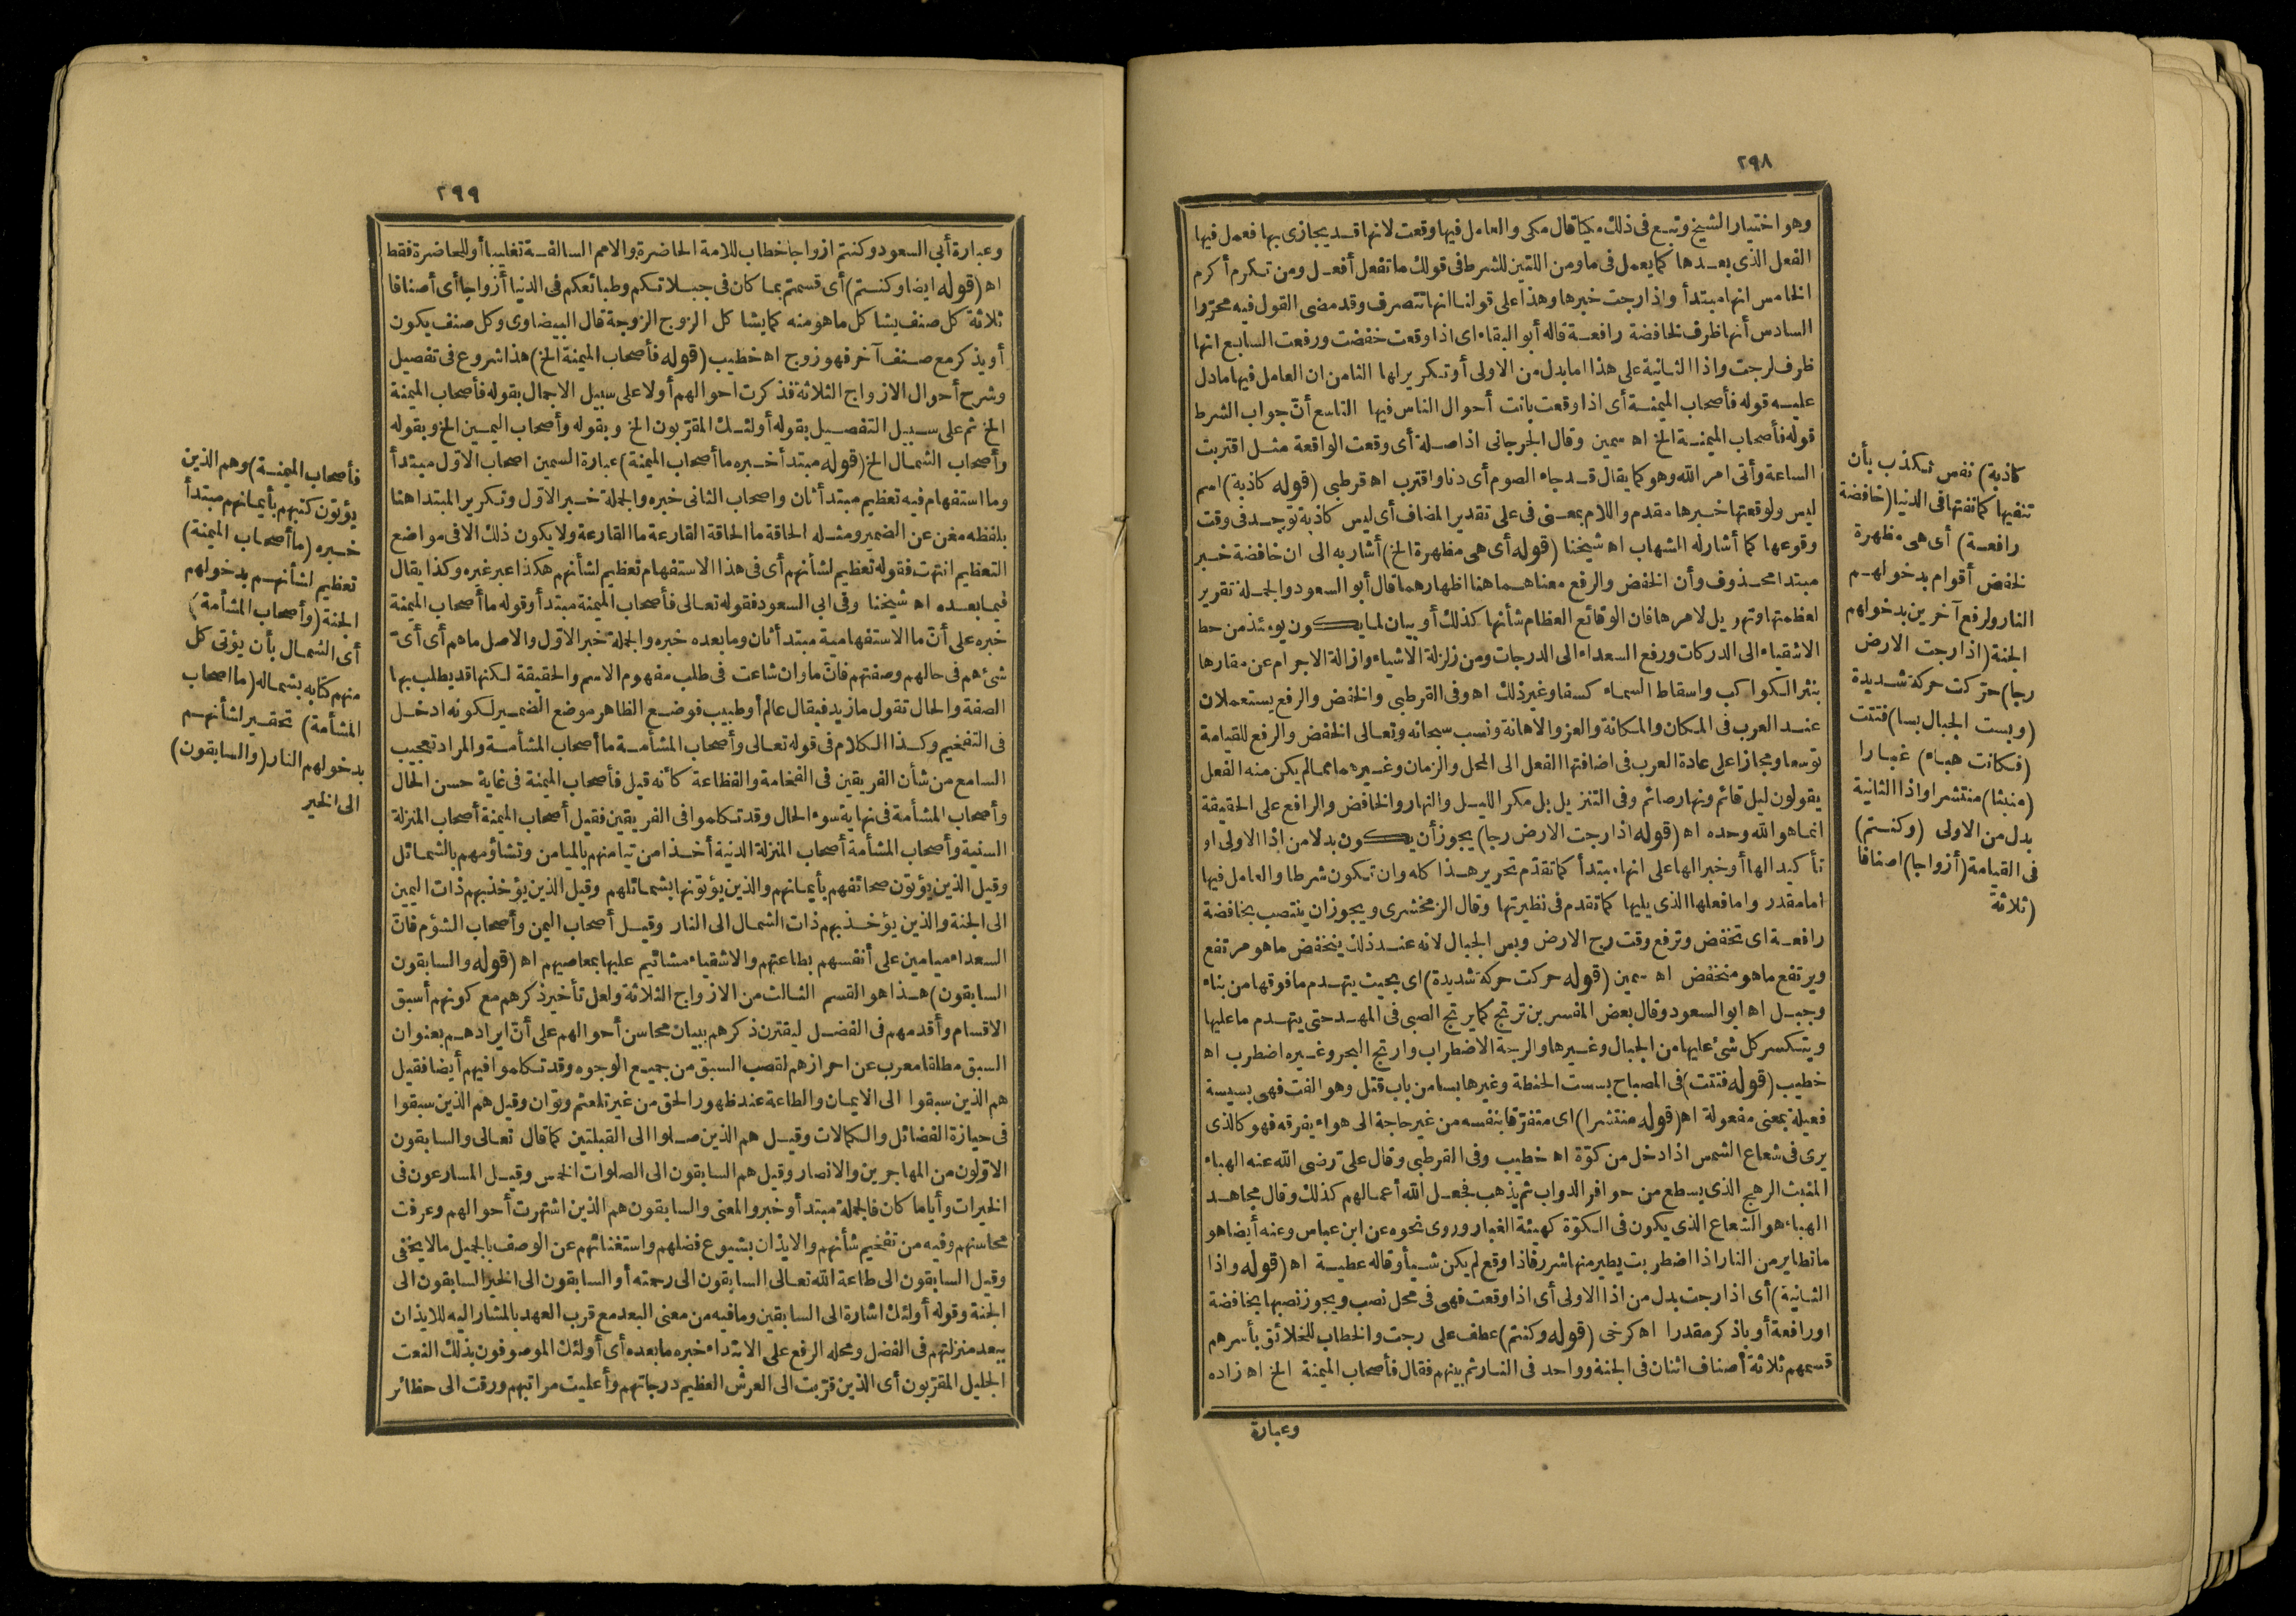 ٢٩٨
وهو اختيار الشيخ وتبع في ذلك مكيا قال مكى والعامل فيها وقعت لانها قد يجازى بها فعمل فيها
الفعل الذى بعدها كما يعمل فى ما ومن اللتين للشرط فى قولك ما تفعل أفعل ومن تكرم أكرم
الخامس انها مبتدأ واذا رجت خبرها وهذا على قولنا انها تتصرف وقد مضى القول فيه محرّرا
السادس أنها ظرف لخافضة رافعة قاله أبو البقاء اى اذا وقعت خفضت ورفعت السابع انها
ظرف لرجت واذا الثانية على هذا اما بدل من الاولى أو تكرير لها الثامن ان العامل فيها ما دل
عليه قوله فأصحاب الميمنة أى اذا وقعت بانت أحوال الناس فيها التاسع أنّ جواب الشرط
قوله فأصحاب الميمنة الخ اه سمين وقال الجرجانى اذا صلة أى وقعت الواقعة مثل اقتربت
الساعة وأتى امر الله وهو كما يقال قد جاء الصوم أى دنا واقترب اه قرطبى (قوله كاذبة) اسم
ليس ولوقعتها خبرها مقدم واللام بمعنى فى على تقدير المضاف أى ليس كاذبة توجد فى وقت
وقوعها كما أشار له الشهاب اه شيخنا (قوله أى هى مظهرة الخ) أشار به الى ان خافضة خبر
مبتدا محذوف وأن الخفض والرفع معناهما هنا اظهارهما قال أبو السعود والجملة تقرير
لعظمتها وتهويل لامرها فان الوقائع العظام شأنها كذلك أو بيان لما يكون يومئذ من حط
الاشقياء الى الدركات ورفع السعداء الى الدرجات ومن زلزلة الاشياء وازالة الاجرام عن مقارها
بنثر الكواكب واسقاط السماء كسفا وغير ذلك اه وفى القرطبى والخفض والرفع يستعملان
عند العرب فى المكان والمكانة والعز والاهانة ونسب سبحانه وتعالى الخفض والرفع للقيامة
توسعا ومجازا على عادة العرب فى اضافتها الفعل الى المحل والزمان وغيرهما مما لم يكن منه الفعل
يقولون ليل قائم ونهار صائم وفى التنزيل بل مكر الليل والنهار والخافض والرافع على الحقيقة
انما هو الله وحده اه (قوله اذا رجت الارض رجا) يجوز أن يكون بدلا من اذا الاولى او
تأكيدا لها أو خبرا لها على انها مبتدأ كما تقدّم تحرير هذا كله وان تكون شرطا والعامل فيها
اما مقدر واما فعلها الذى يليها كما تقدم فى نظيرتها وقال الزمخشرى ويجوز ان ينتصب بخافضة
رافعة اى تخفض وترفع وقت رج الارض وبس الجبال لانه عند ذلك ينخفض ما هو مرتفع
ويرتفع ما هو منخفض اه سمين (قوله حركت حركة شديدة) اى بحيث يتهدم ما فوقها من بناء
وجبل اه ابو السعود وقال بعض المفسرين ترتج كما يرتج الصبى فى المهد حتى يتهدم ما عليها
ويتكسر كل شئ عليها من الجبال وغيرها والرجة الاضطراب وارتج البحر وغيره اضطرب اه
خطيب (قوله فتتت) فى المصباح بسست الحنطة وغيرها بسا من باب قتل وهو الفت فهى بسيسة
فعيلة بمعنى مفعولة اه (قوله منتشرا) اى متفرّقا بنفسه من غير حاجة الى هواء يفرقه فهو كالذى
يرى فى شعاع الشمس اذا دخل من كوّة اه خطيب وفى القرطبى وقال علىّ رضى الله عنه الهباء
المنبث الرهج الذى يسطع من حوافر الدواب ثم يذهب فجعل الله أعمالهم كذلك وقال مجاهد
الهباء هو الشعاع الذى يكون فى الكوّة كهيئة الغبار وروى نحوه عن ابن عباس وعنه أيضا هو
ما تطاير من النار اذا اضطربت يطير منها شرر فاذا وقع لم يكن شيأ وقاله عطية اه (قوله واذا
الثانية) أى اذا رجت بدل من اذا الاولى أى اذا وقعت فهى فى محل نصب ويجوز نصبها بخافضة
او رافعة أو باذكر مقدرا اه كرخى (قوله وكنتم) عطف على رجت والخطاب للخلائق بأسرهم
قسمهم ثلاثة أصناف اثنان فى الجنة وواحد فى النار ثم بينهم فقال فأصحاب الميمنة الخ اه زاده
وعبارة
كاذبة) نفس تكذب بأن
تنفيها كما نفتها فى الدنيا (خافضة
رافعة) أى هى مظهرة
لخفض أقوام بدخولهم
النار ولرفع آخرين بدخولهم
الجنة (اذا رجت الارض
رجا) حرّكت حركة شديدة
(وبست الجبال بسا) فتتت
(فكانت هباء) غبارا
(منبثا) منتشرا واذا الثانية
بدل من الاولى (وكنتم)
فى القيامة (أزواجا) اصنافا
(ثلاثة
٢٩٩
وعبارة أبى السعود وكنتم ازواجا خطاب للامة الحاضرة والامم السالفة تغليبا أو للحاضرة فقط
اه (قوله ايضا وكنتم) أى قسمتم بما كان فى جبلاتكم وطبائعكم فى الدنيا أزواجا أى أصنافا
ثلاثة كل صنف يشاكل ما هو منه كما يشاكل الزوج الزوجة قال البيضاوى وكل صنف يكون
أو يذكر مع صنف آخر فهو زوج اه خطيب (قوله فأصحاب الميمنة الخ) هذا شروع فى تفصيل
وشرح أحوال الازواج الثلاثة فذكرت احوالهم أولا على سبيل الاجمال بقوله فأصحاب الميمنة
الخ ثم على سبيل التفصيل بقوله أولئك المقرّبون الخ وبقوله وأصحاب اليمين الخ وبقوله
وأصحاب الشمال الخ (قوله مبتدأ خبره ما أصحاب الميمنة) عبارة السمين اصحاب الاوّل مبتدأ
وما استفهام فيه تعظيم مبتدأ ثان واصحاب الثانى خبره والجملة خبر الاوّل وتكرير المبتدا هنا
بلفظه مغن عن الضمير ومثله الحاقة ما الحاقة القارعة ما القارعة ولا يكون ذلك الا فى مواضع
التعظيم انتهت فقوله تعظيم لشأنهم أى فى هذا الاستفهام تعظيم لشأنهم هكذا عبر غيره وكذا يقال
فيما بعده اه شيخنا وفى ابى السعود فقوله تعالى فأصحاب الميمنة مبتدأ وقوله ما أصحاب الميمنة
خبره على أنّ ما الاستفهامية مبتدأ ثان وما بعده خبره والجملة خبر الاوّل والاصل ما هم أى أىّ
شئ هم فى حالهم وصفتهم فانّ ما وان شاعت فى طلب مفهوم الاسم والحقيقة لكنها قد يطلب بها
الصفة والحال تقول ما زيد فيقال عالم أو طبيب فوضع الظاهر موضع الضمير لكونه ادخل
فى التفخيم وكذا الكلام فى قوله تعالى وأصحاب المشأمة ما أصحاب المشأمة والمراد تعجيب
السامع من شأن الفريقين فى الفخامة والفظاعة كأنه قيل فأصحاب الميمنة فى غاية حسن الحال
وأصحاب المشأمة فى نهاية سوء الحال وقد تكلموا فى الفريقين فقيل أصحاب الميمنة أصحاب المنزلة
السنية وأصحاب المشأمة أصحاب المنزلة الدنية أخذا من تيامنهم بالميامن وتشاؤمهم بالشمائل
وقيل الذين يؤتون صحائفهم بأيمانهم والذين يؤتونها بشمائلهم وقيل الذين يؤخذ بهم ذات اليمين
الى الجنة والذين يؤخذ بهم ذات الشمال الى النار وقيل أصحاب اليمن وأصحاب الشؤم فانّ
السعداء ميامين على أنفسهم بطاعتهم والاشقياء مشائيم عليها بمعاصيهم اه (قوله والسابقون
السابقون) هذا هو القسم الثالث من الازواج الثلاثة ولعل تأخير ذكرهم مع كونهم أسبق
الاقسام وأقدمهم فى الفضل ليقترن ذكرهم ببيان محاسن أحوالهم على أنّ ايرادهم بعنوان
السبق مطلقا معرب عن احرازهم لقصب السبق من جميع الوجوه وقد تكلموا فيهم أيضا فقيل
هم الذين سبقوا الى الايمان والطاعة عند ظهور الحق من غير تلعثم وتوان وقيل هم الذين سبقوا
فى حيازة الفضائل والكمالات وقيل هم الذين صلوا الى القبلتين كما قال تعالى والسابقون
الاوّلون من المهاجرين والانصار وقيل هم السابقون الى الصلوات الخمس وقيل المسارعون فى
الخيرات وأياما كان فالجملة مبتدأ وخبر والمعنى والسابقون هم الذين اشتهرت أحوالهم وعرفت
محاسنهم وفيه من تفخيم شأنهم والايذان بشيوع فضلهم واستغنائهم عن الوصف بالجميل ما لا يخفى
وقيل السابقون الى طاعة الله تعالى السابقون الى رحمته أو السابقون الى الخير السابقون الى
الجنة وقوله أولئك اشارة الى السابقين وما فيه من معنى البعد مع قرب العهد بالمشار اليه للايذان
ببعد منزلتهم فى الفضل ومحله الرفع على الابتداء خبره ما بعده أى أولئك الموصوفون بذلك النعت
الجليل المقرّبون أى الذين قرّبت الى العرش العظيم درجاتهم وأعليت مراتبهم ورقت الى حظائر
فأصحاب الميمنة) وهم الذين
يؤتون كتبهم بأيمانهم مبتدأ
خبره (ما أصحاب الميمنة)
تعظيم لشأنهم بدخولهم
الجنة (وأصحاب المشأمة)
أى الشمال بأن يؤتى كل
منهم كتابه بشماله (ما اصحاب
المشأمة) تحقير لشأنهم
بدخولهم النار (والسابقون)
الى الخير